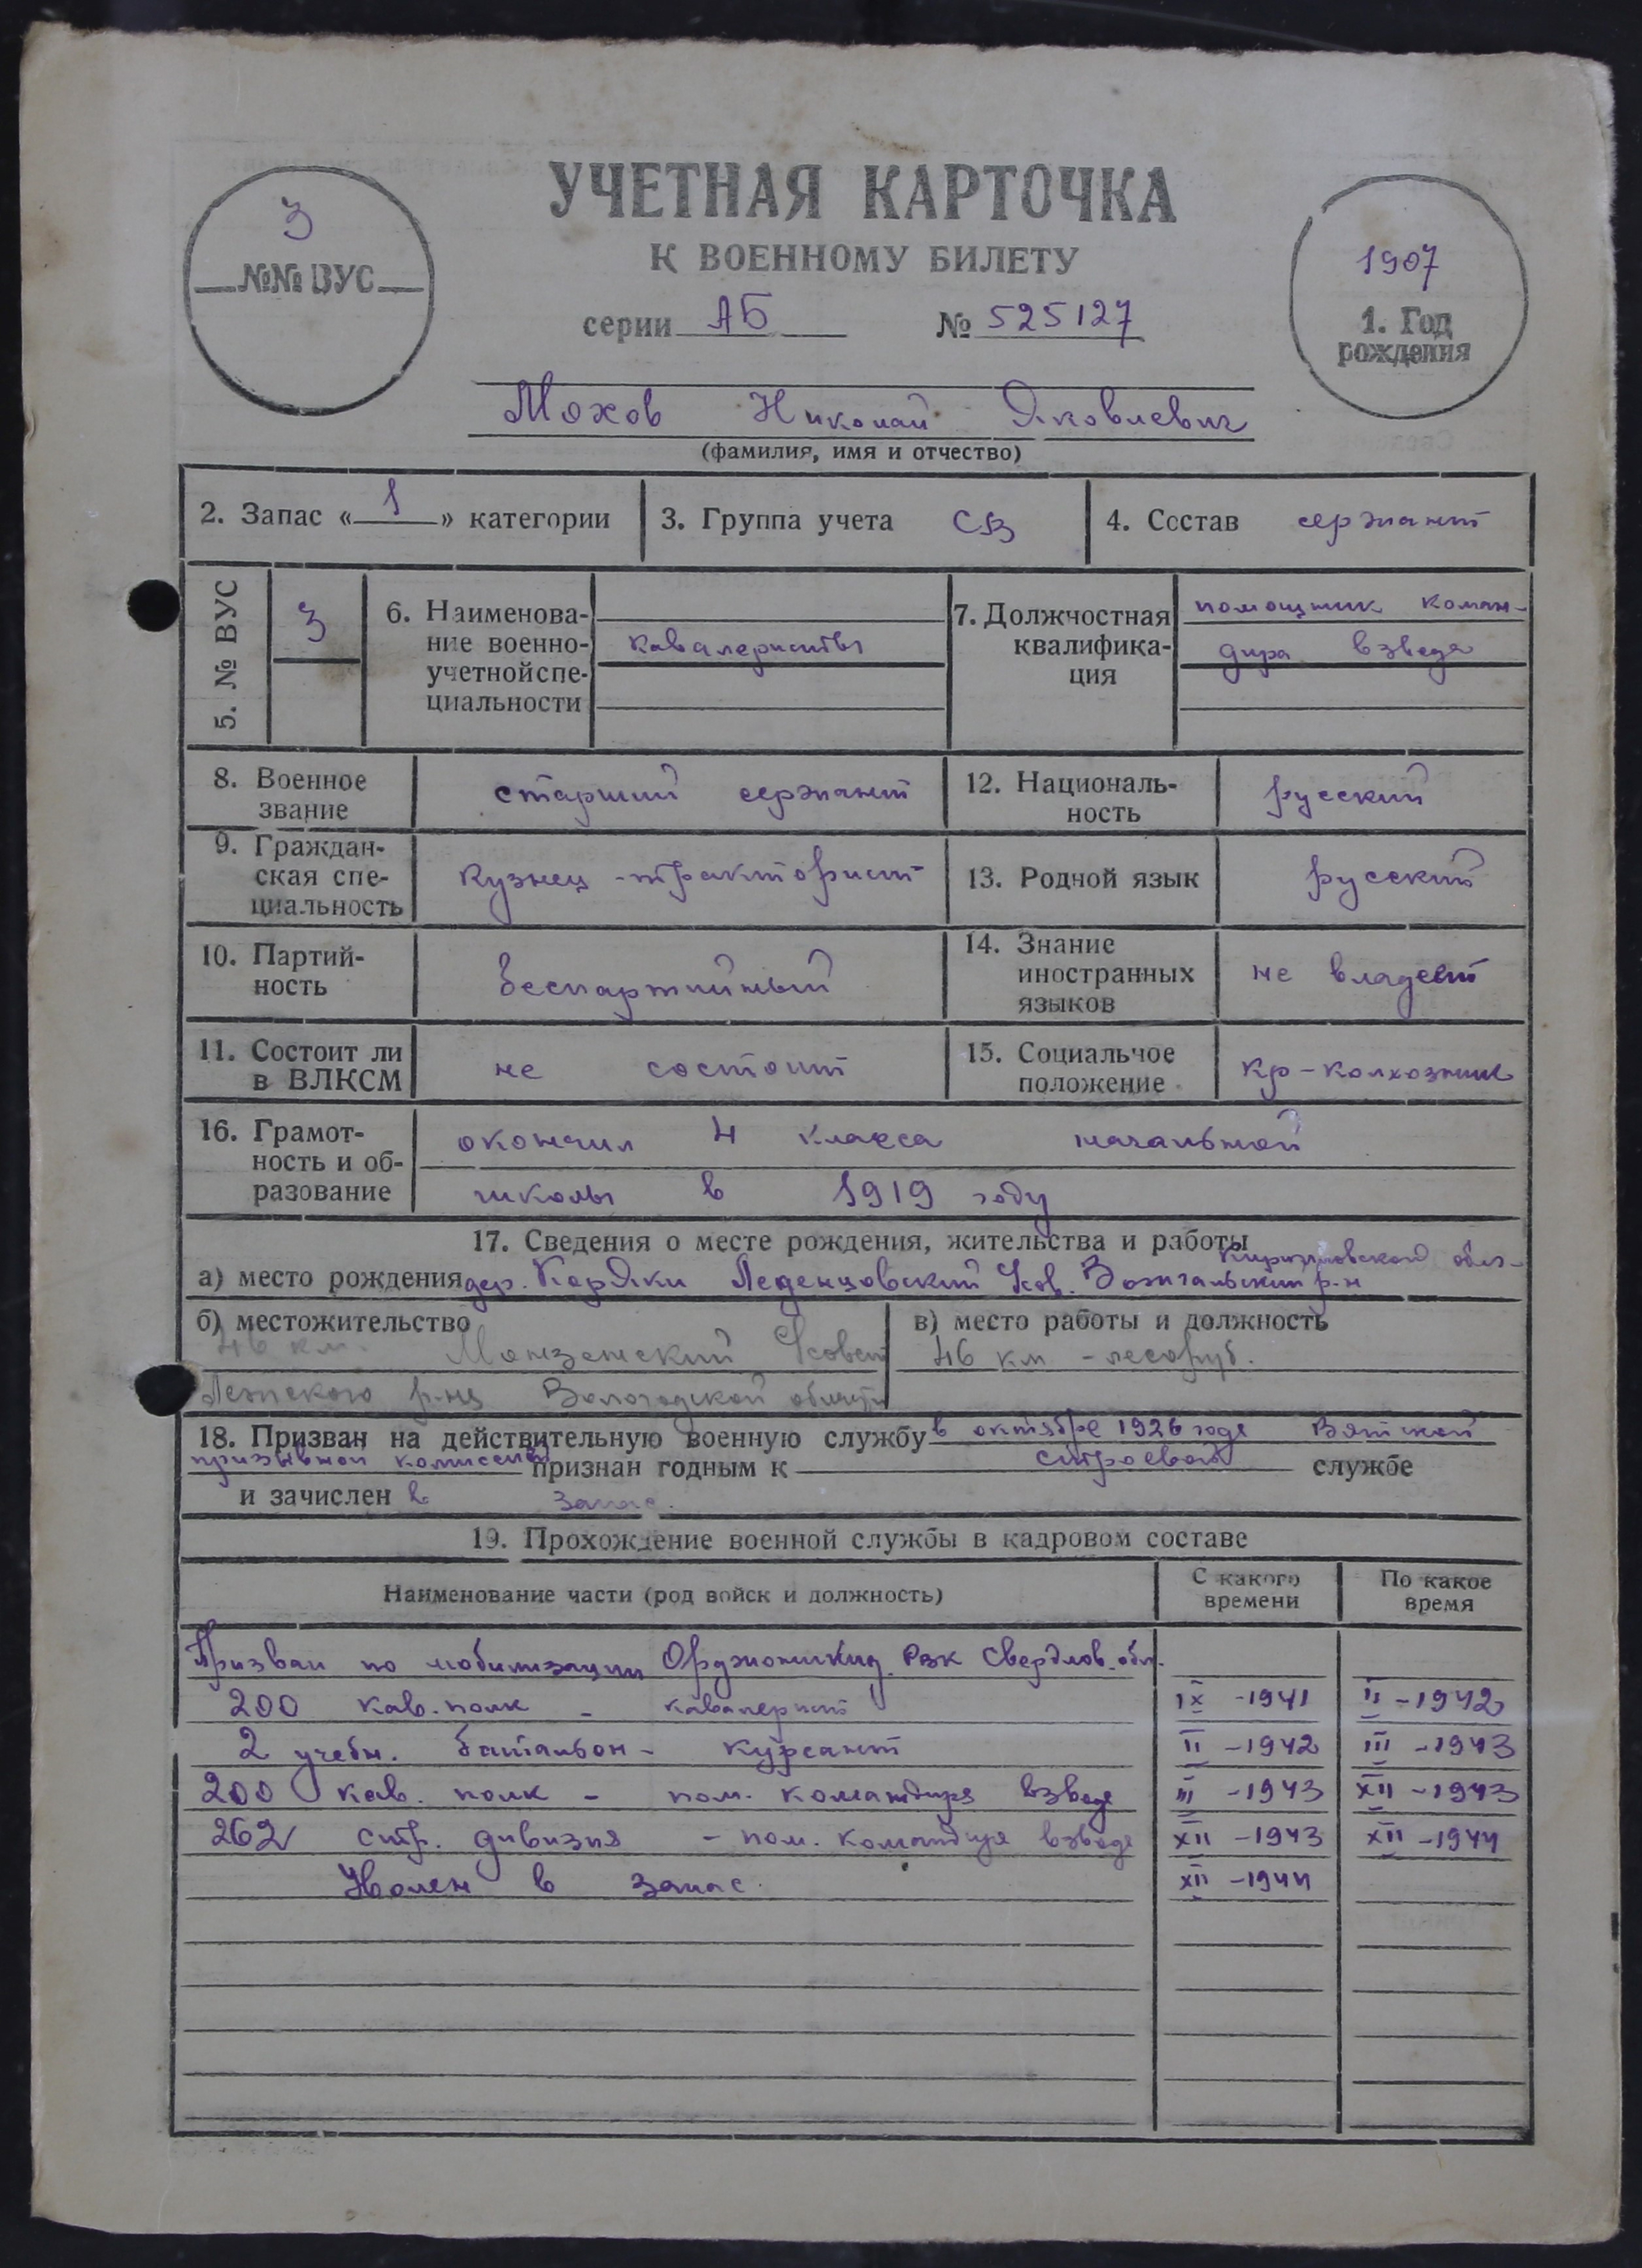 УЧЕТНАЯ КАРТОЧКА
К ВОЕННОМУ БИЛЕТУ
серии АБ № 525127
3
№№ ВУС
1907
1. Год
рождения
Мохов Николай Яковлевич
(фамилия, имя и отчество)
2. Запас « 1 » категории
3. Группа учета СВ
4. Состав сержант
5. № ВУС
3
6. Наименова-
ние военно-
учетной спе-
циальности
кавалеристы
7. Должностная
квалифика-
ция
помощник коман-
дира взвода
8. Военное
звание
старший сержант
12. Националь-
ность
русский
9. Граждан-
ская спе-
циальность
Кузнец-тракторист
13. Родной язык
русский
10. Партий-
ность
беспартийный
14. Знание
иностранных
языков
не владеет
11. Состоит ли
в ВЛКСМ
не состоит
15. Социальное
положение
кр-колхозник
16. Грамот-
ность и об-
разование
окончил 4 класса начальной
школы в 1919 году
17. Сведения о месте рождения, жительства и работы
обл-
а) место рождения дер. Леденцовский Усов. Вожгальский р-н
б) местожительство
46 км. Монзенский Усовет
р-на Вологодской области
в) место работы и должность
46 км - лесоруб.
18. Призван на действительную военную службу в октябре 1926 года Вятской
призывной комиссией признан годным к строевой службе
и зачислен в запас.
19. Прохождение военной службы в кадровом составе
Наименование части (род войск и должность)
С какого
времени
По какое
время
Призван по мобилизации Орджоникид. Рвк Свердлов. обл.
200 кав. полк - кавалерист IX -1941 II -1942
2 учебн. батальон - курсант II -1942 III -1943
200 кав. полк - пом. командира взвода III -1943 XII -1943
262 стр. дивизия - пом. командира взвода XII -1943 XII -1944
Уволен в запас. XII -1944